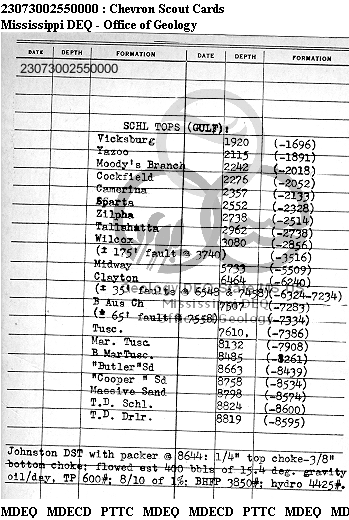 23073002550000 : Chevron Scout Cards
Mississippi DEQ - Office of Geology
DATE DEPTH FORMATION DATE DEPTH FORMATION
23073002550000
SCHL TOPS (GULF):
Vicksburg 1920 (-1696)
Yazoo 2115 (-1891)
Moody's Branch 2242 (-2018)
Cockfield 2276 (-2052)
Camerina 2357 (-2133)
Sparta 2552 (-2328)
Zilpha 2738 (-2514)
Tallahatta 2962 (-2738)
Wilcox 3080 (-2856)
(± 175' fault @ 3740) (-3516)
Midway 5733 (-5509)
Clayton 6464 (-6240)
(± 35' faults @ 6548 & 7458) (-6324-7234)
B Aus Ch 7507 (-7283)
(± 65' fault @ 7558) (-7334)
Tusc. 7610. (-7386)
Mar. Tusc. 8132 (-7908)
B MarTusc. 8485 (-8261)
"Butler"Sd 8663 (-8439)
"Cooper " Sd 8758 (-8534)
Massive Sand 8798 (-8574)
T.D. Schl. 8824 (-8600)
T.D. Drlr. 8819 (-8595)
Johnston DST with packer @ 8644: 1/4" top choke-3/8"
bottom choke: flowed est 400 bbls of 15.4 deg. gravity
oil/day, TP 600#; 8/10 of 1%; BHFP 3850#; hydro 4425#.
MDEQ MDECD PTTC MDEQ MDECD PTTC MDEQ MD